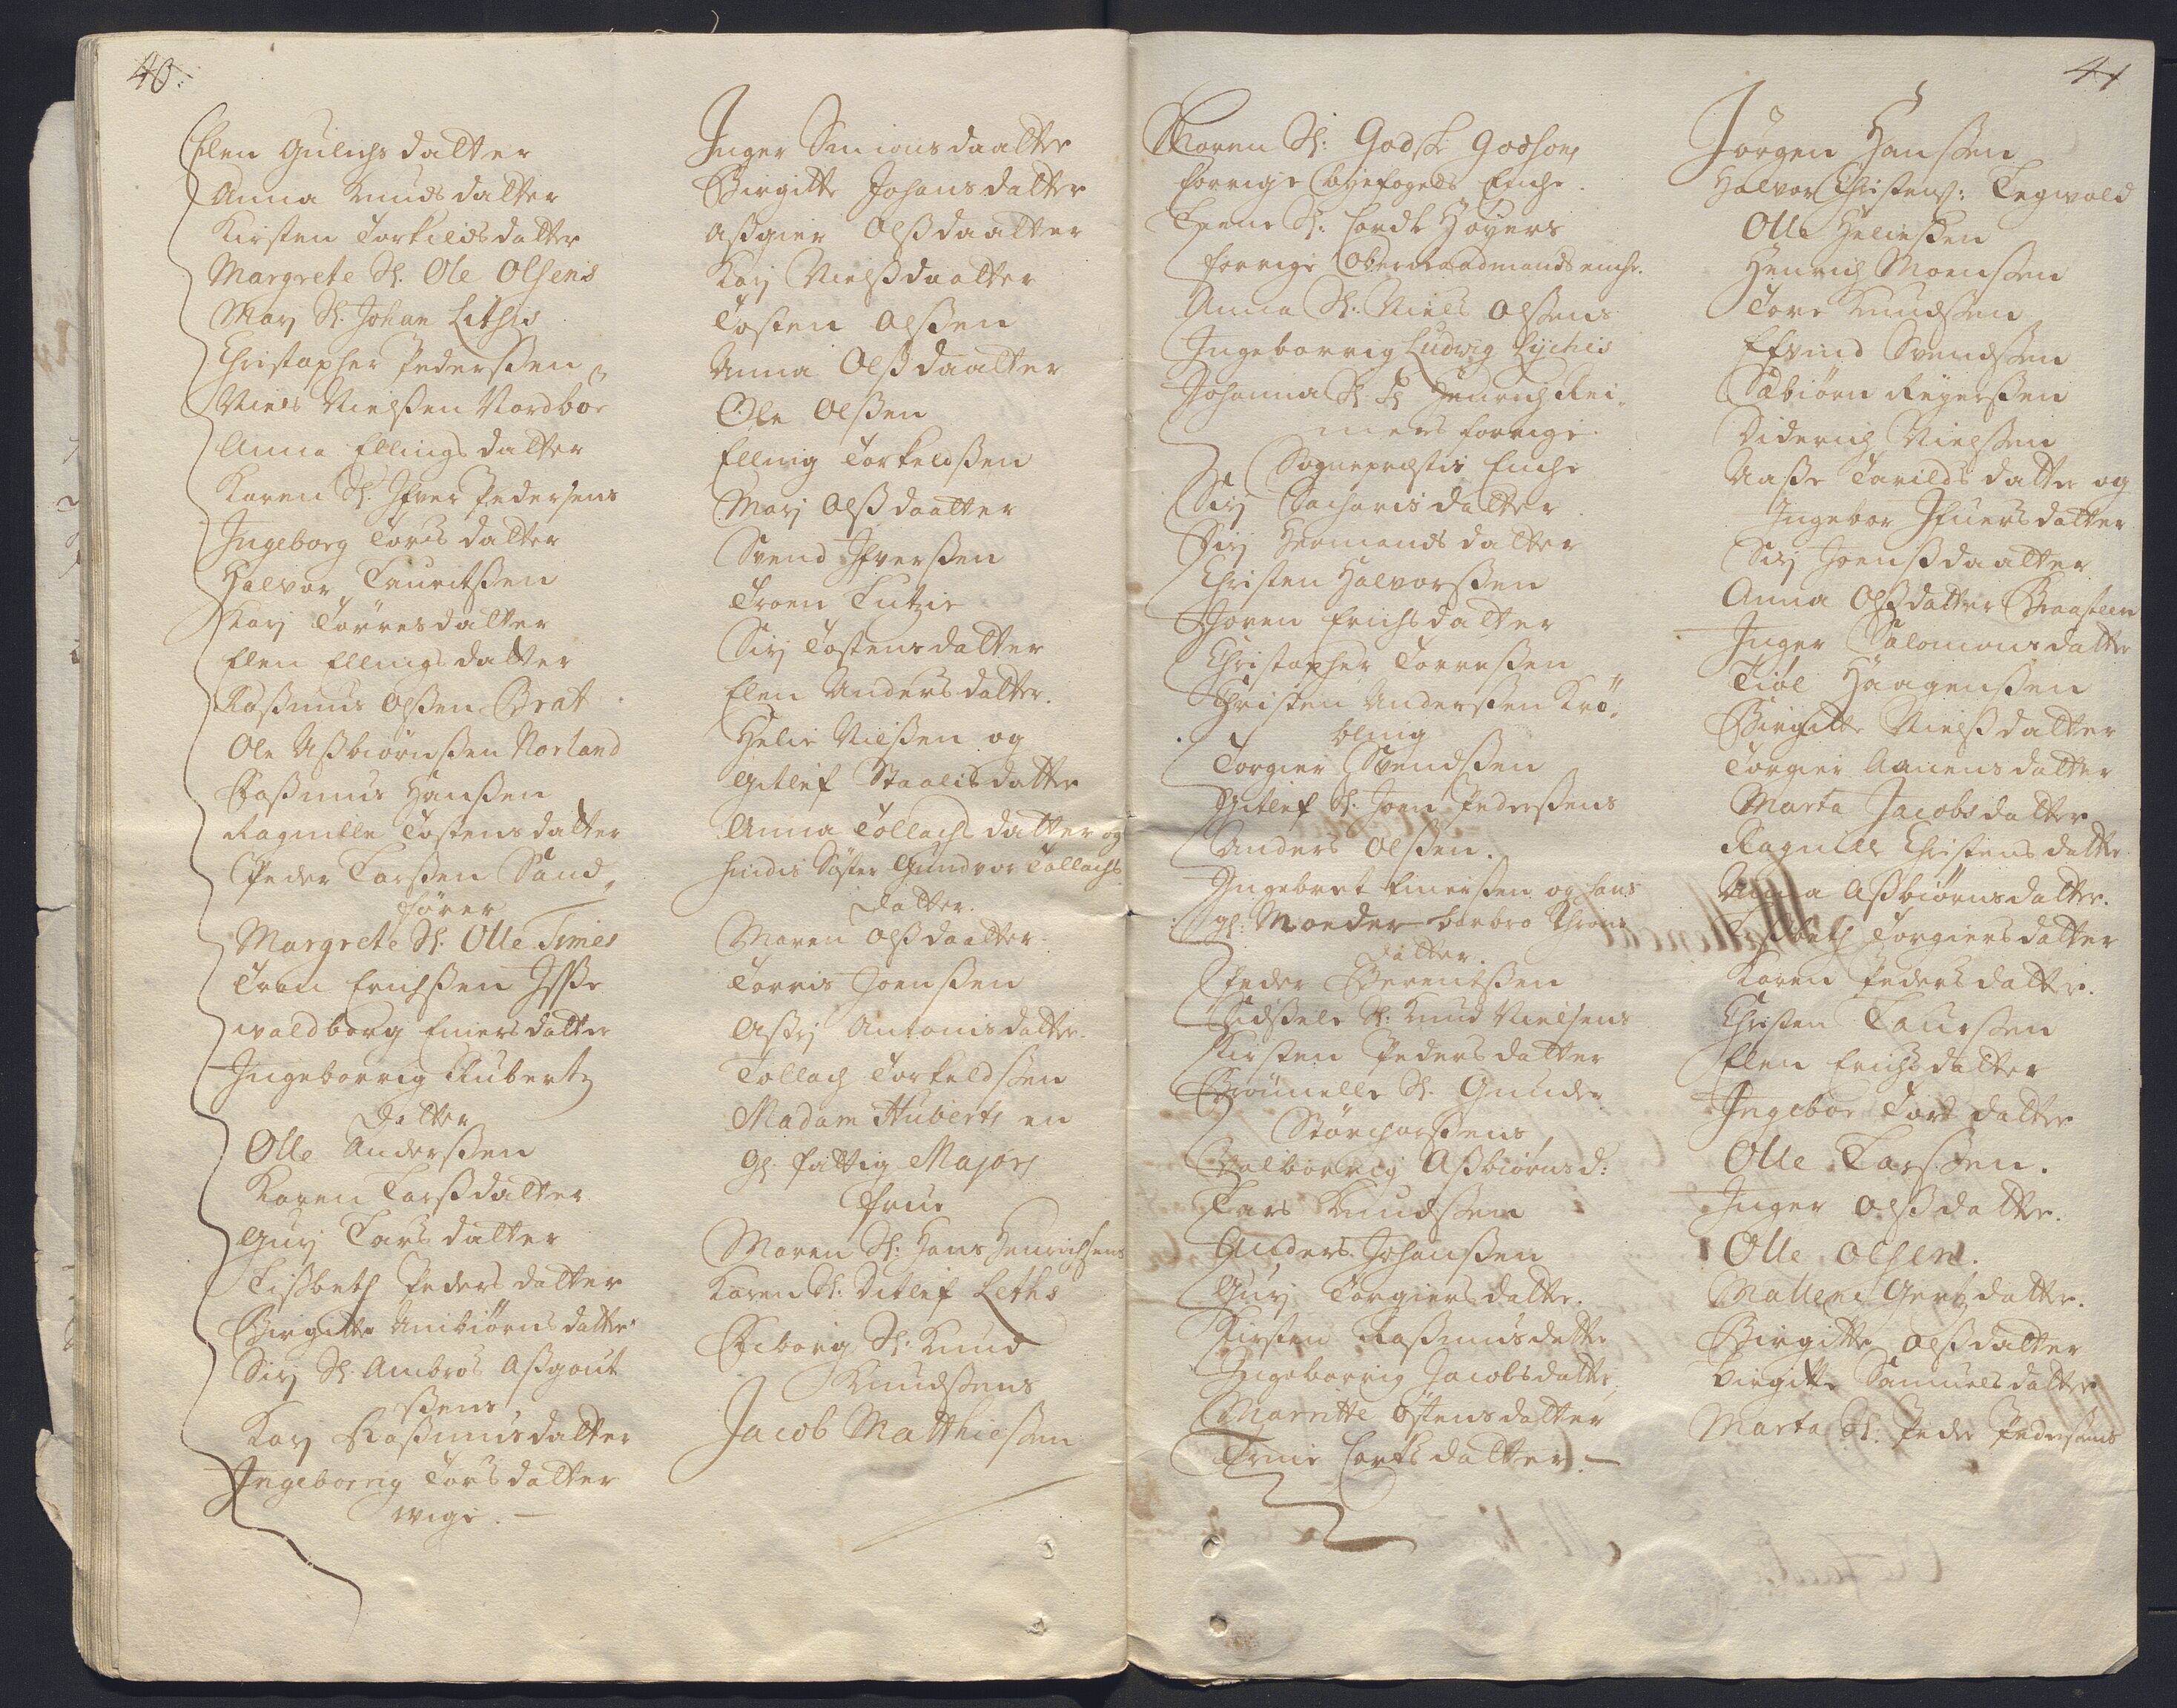 40:
Elen Gulichsdatter
Anna Knudsdatter
Kirsten Torkildsdatter
Margrete Sl. Ole Olsens
Mary Sl. Johan Lethis
Christopher Pederssen
Niels Nielssen Nordboe
Anna Ellingsdatter
Karen Sl. Ifver Pedersens
Ingeborg Toresdatter
Halvor Lauritssen
Kary Torresdatter
Elen Ellingsdatter
Rassmus Olssen Brat
Ole Assbiørnssen Norland
Rassmus Hanssen
Ragnille Tostensdatter
Peder Larssen Sand,
fører
Margrete Sl. Olle Times
Tron Erichssen
Waldborg Einersdatter
Ingeborrig Rubertz
datter
Olle Anderssen
Karen Larssdatter
Gury Larsdatter
Lissbeth Pedersdatter
Birgitte Anbiørnsdatter
Siry Sl. Ambros Assgout
ssens
Kary Rassmusdatter
Ingeborrig Torsdatter
Wige. —
Inger Simionsdaatter
Birgitte Johansdatter
Assgier Olssdaatter
Kary Nielssdaatter
Tosten Olssen
Anna Olssdaatter
Ole Olssen
Elling Torkeldssen
Mary Olssdaatter
Svend Ifverssen
Troen
Siry Tostensdatter
Elen Andersdatter.
Helie Nilssen og
Gitlef Staalesdatter
Anna Tollachsdatter og
hindis Søster Gundvor Tollachs
datter.
Maren Olssdaatter
Torris Joenssen
Assry Antonisdatter
Tollach Torkeldssen
Madam Huberts en
gl. fattig Majors
frue
Maren Sl: Hans Henrichsens
Karen Sl: Ditlef Leths
Siborg Sl: Knud
Knudssens
Jacob Matthiesen
41
Maren Sl: Godske Godsons
forrige byefogeds Enche.
Lene Sl: Cordt Høyers
forrige enche.
Anna Sl. Niels Olssens
Ingeborrig Ludvig Lychis
Johanna Sl. Hr Henrich Rei,
mers forrige
Sognepræstis Enche
Siry Sacharisdatter
Siry Hermandsdatter
Christen Halvorssen
Joren Erichsdatter
Christopher Torressen
Christen Anderssen Krø,
bling
Torgier Svendssen
Gitlef Sl. Joen Pederssens
Anders Olssen.
Ingebret Einerssen og hans
gl: Moeder barbro Throns
datter.
Peder Berentssen
Sidssele Sl: Knud Nielsens
Kirsten Pedersdatter
Brønnelle Sl. Gunder
Størchorssens
Valborrig Assbiørnsd:
Lars Knudssen
Anders Johanssen
Gury Torgiersdatter.
Kirsten Rassmusdatter
Ingeborrig Jacobsdatter
Marritte Østensdatter
Trine Cortsdatter. —
Jørgen Hanssen
Halvor Christens: Tegvold
Olle Heliessen
Henrich Monssen
Tore Knudssen
Efvind Svendssen
Sæbiørn Reyerssen
Diderich Nielssen
Aasse Tarildsdatter og
Ingebor Ifuersdatter
Siry Joenssdaatter
Anna Olssdatter Braasteen
Inger Salomonsdatter
Tiøl Haagenssen
Birgitte Nielssdatter
Torgier Aanensdatter
Marta Jacobsdatter
Ragnille Christensdatter
Anna Assbiørnsdatter.
Lissbeth Torgiersdatter
Karen Pedersdatter.
Christen Laurssen
Elen Erichsdatter
Ingebor Torsdatter
Olle Larssen.
Inger Olssdatter.
Olle Olsen.
Mallene Gertzdatter.
Birgitte Olssdatter
Birgitte Samuelsdatter
Marta Sl: Peder Pederssens